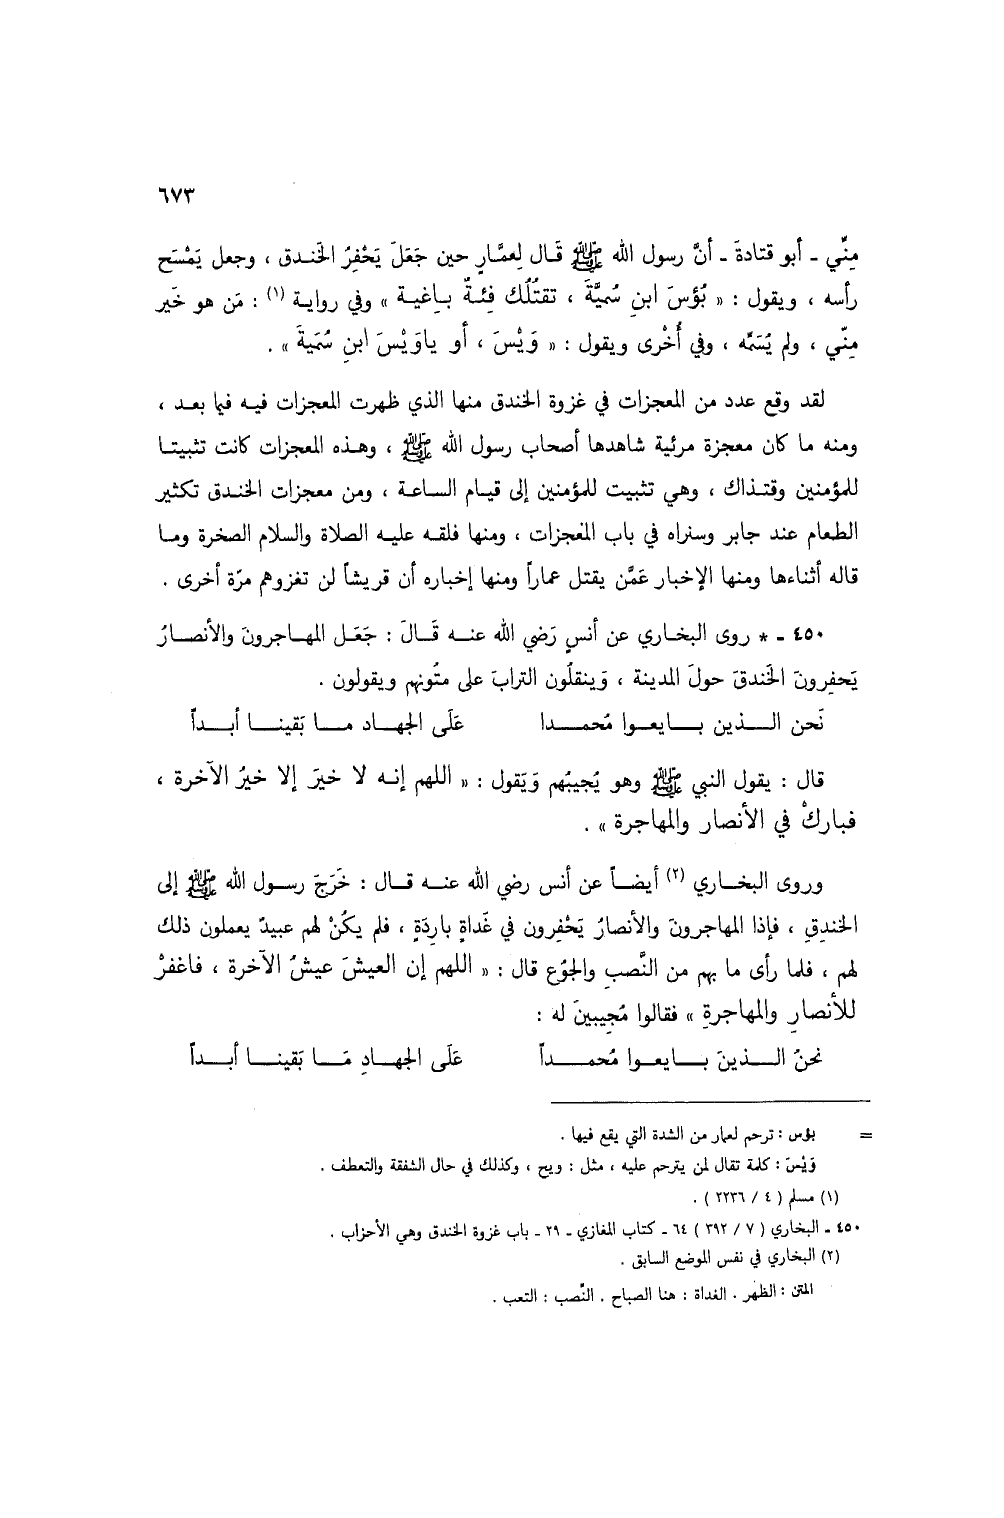 ٦٧٣
مِنِّي ـ أبو قتادةَ ـ أنَّ رسول الله ﷺ قَال لِعمَّارٍ حين جَعَلَ يَحْفِرُ الخَندق ، وجعل يَمْسَح
رأسه ، ويقول : « بُؤسَ ابنِ سُميَّةَ ، تقتُلُك فِئةٌ بـاغيـة » وفي روايـة (١) : مَن هو خَير
مِنّي ، ولم يُسَمِّه ، وفي أُخْرى ويقول : « وَيْسَ ، أو ياوَيْسَ ابنِ سُمَيةَ » .
لقد وقع عدد من المعجزات في غزوة الخندق منها الذي ظهرت المعجزات فيـه فيما بعـد ،
ومنه ما كان معجزة مرئية شاهدها أصحاب رسول الله ﷺ ، وهـذه المعجزات كانت تثبيتـا
للمؤمنين وقتـذاك ، وهي تثبيت للمؤمنين إلى قيـام السـاعـة ، ومن معجزات الخنـدق تكثير
الطعام عند جابر وسنراه في باب المعجزات ، ومنها فلقـه عليـه الصلاة والسلام الصخرة ومـا
قاله أثناءها ومنها الإخبار عَمَّن يقتل عماراً ومنها إخباره أن قريشاً لن تغزوهم مرّة أخرى .
٤٥٠ ـ * روى البخـاري عن أنسٍ رَضي الله عنـه قَـالَ : جَعَـل المهـاجرونَ والأنصـارُ
يَحفِرونَ الخَندقَ حولَ المدينة ، وَينقلُون الترابَ على متُونهم ويقولون .
نَحن الـــذين بـــايعـــوا مُحمـــدا عَلَى الجهـاد مـــا بَقينـــا أبـــداً
قال : يقول النبي ﷺ وهو يُجيبُهم وَيَقول : « اللهم إنـه لا خيرَ إلا خيرُ الآخرة ،
فبارِكْ في الأنصار والمهاجرة » .
وروى البخـاري (٢) أيضـاً عن أنس رضي الله عنـه قـال : خَرَجَ رسـول الله ﷺ إلى
الخندِقِ ، فإذا المهاجرونَ والأنصارُ يَحْفِرون في غَداةٍ بارِدَةٍ ، فلم يكُنْ لهم عبيدٌ يعملون ذلك
لهم ، فلما رأى ما بهم من النَّصبِ والجوُعِ قال : « اللهم إن العيشَ عيشُ الآخرة ، فاغفرْ
للأنصارِ والمهاجرةِ » فقالوا مُجيبينَ له :
نحنُ الـــذينَ بـــايعـــوا مُحمـــداً عَلَى الجهـادِ مَـــا بَقينـــا أبـــداً
= بؤس : ترحم لعمار من الشدة التي يقع فيها .
وَيْسَ : كلمة تقال لمن يترحم عليه ، مثل : ويح ، وكذلك في حال الشفقة والتعطف .
(١) مسلم ( ٤ / ٢٢٣٦ ) .
٤٥٠ ـ البخاري ( ٧ / ٣٩٢ ) ٦٤ ـ كتاب المغازي ـ ٢٩ ـ باب غزوة الخندق وهي الأحزاب .
(٢) البخاري في نفس الموضع السابق .
المتن : الظهر . الغداة : هنا الصباح . النَّصب : التعب .